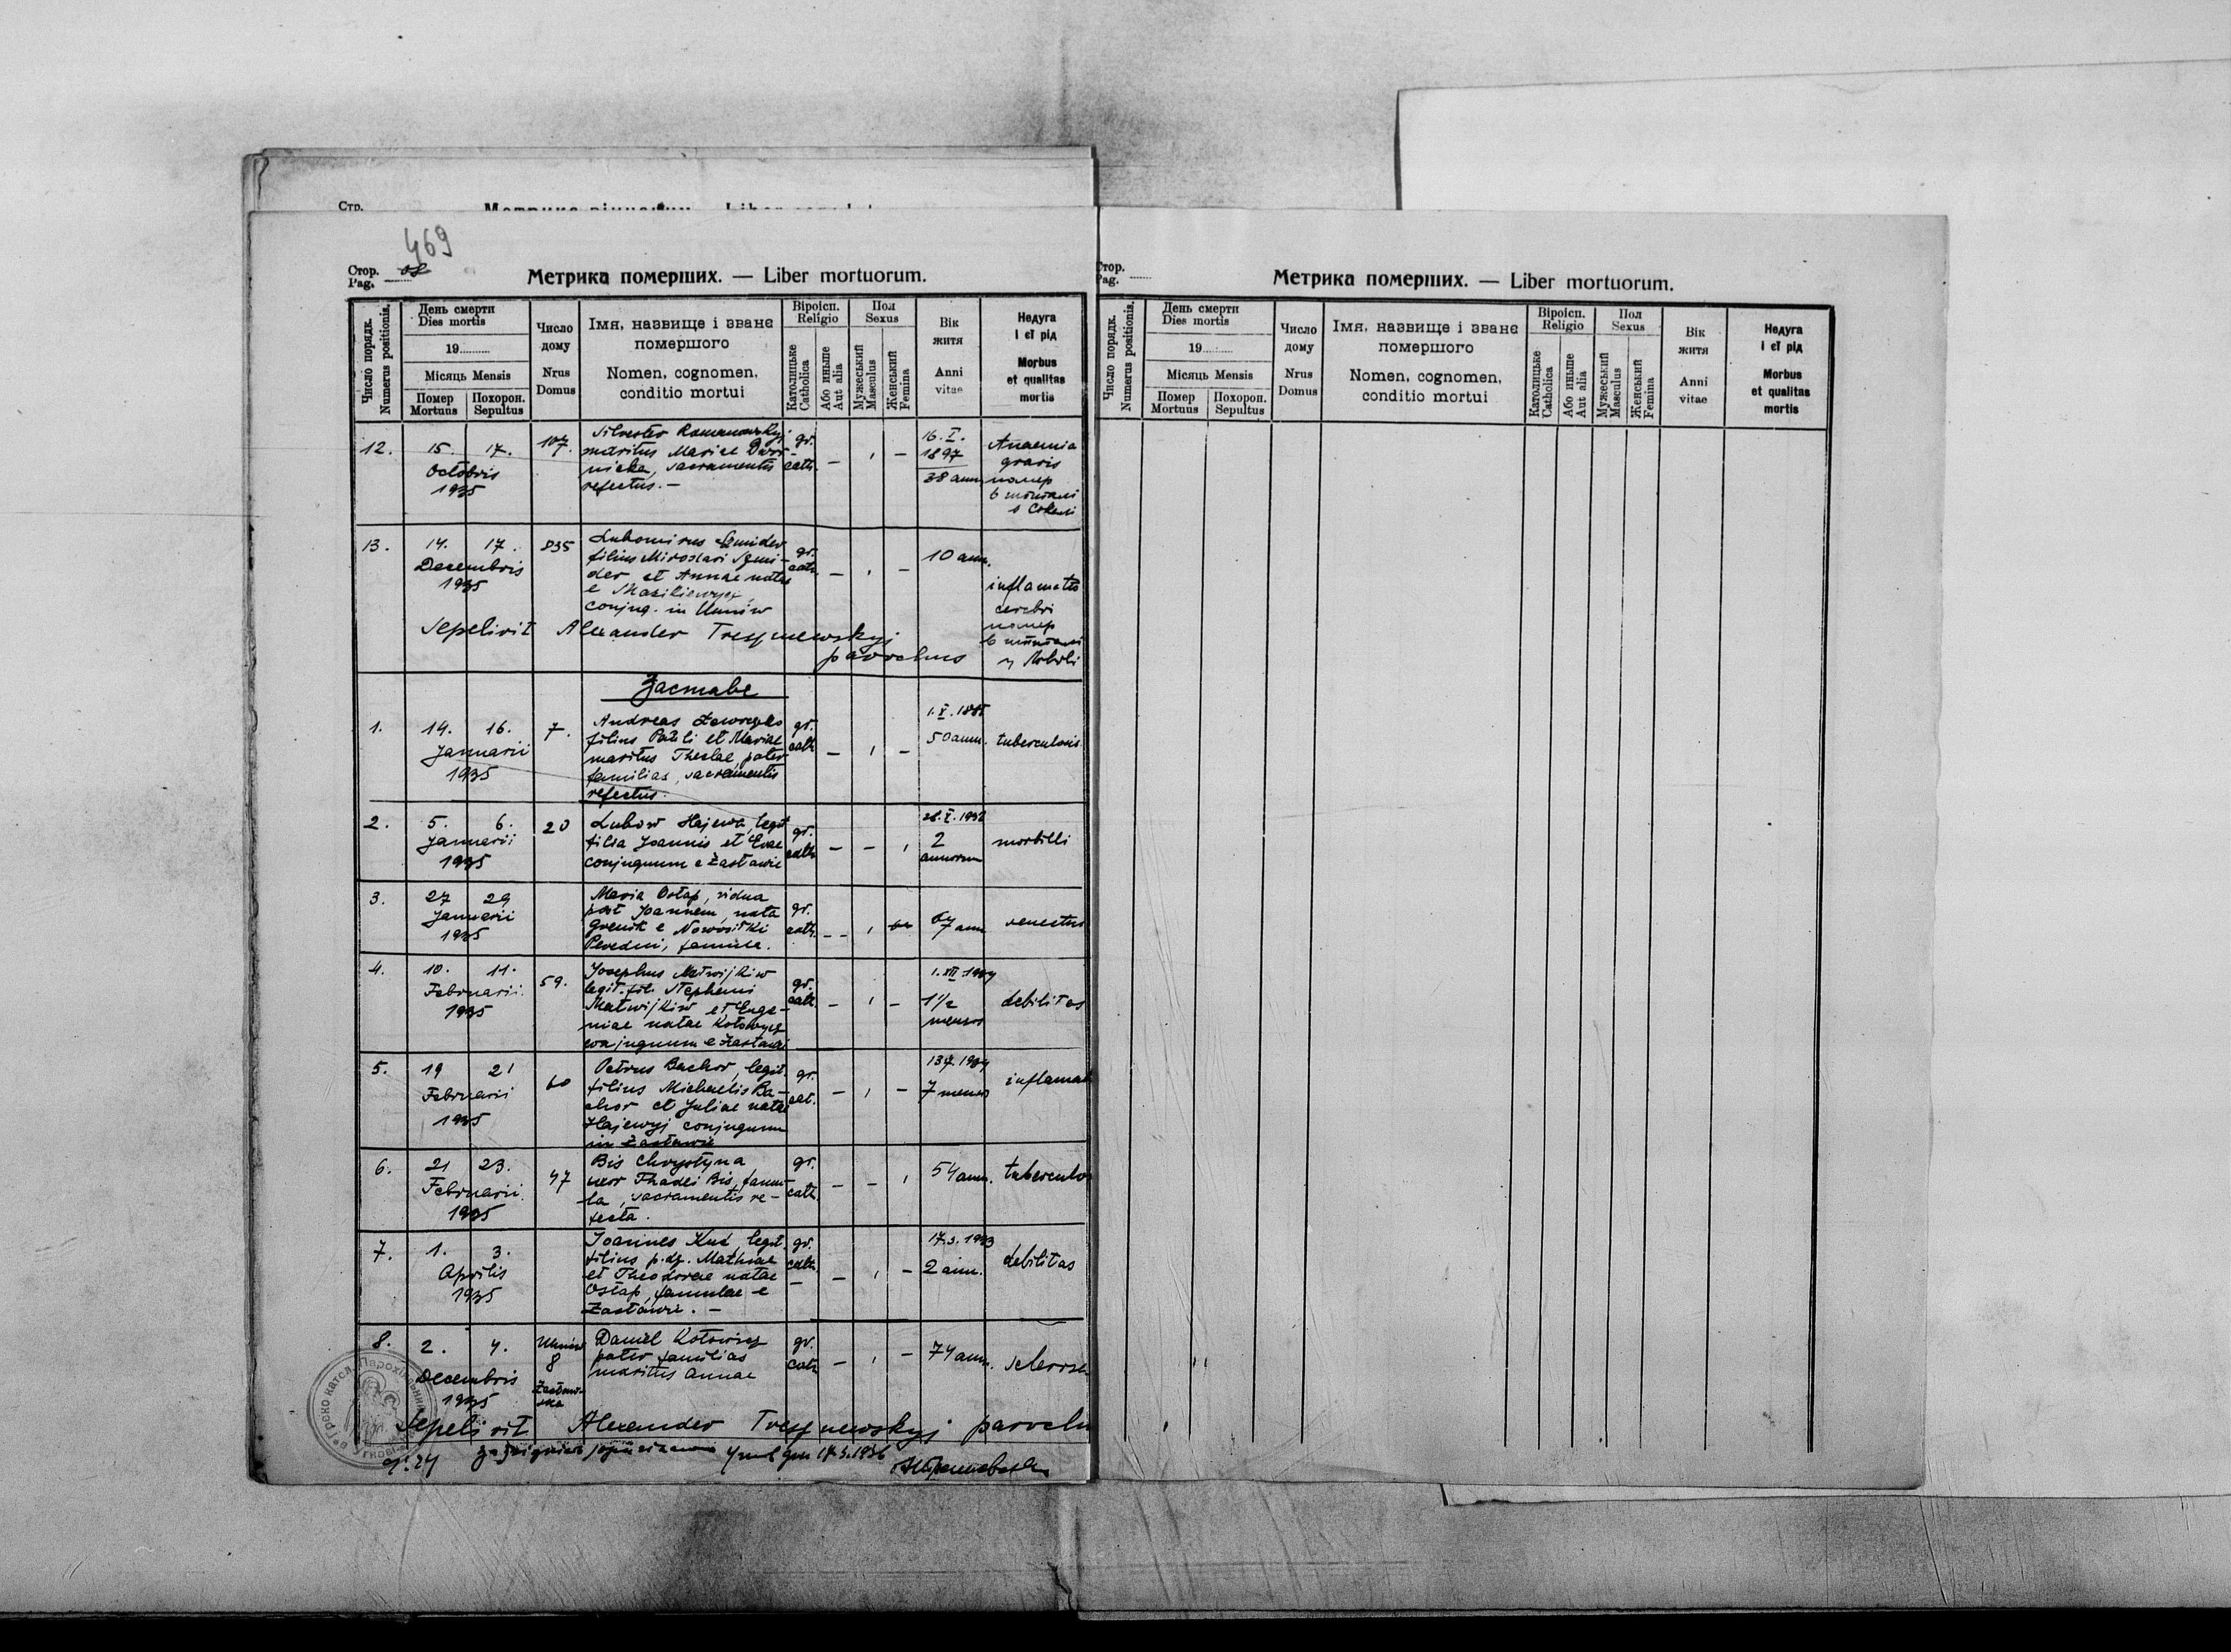 Стр.
469
Стор.
Pag.
Метрика померших. — Liber mortuorum.
Число порядк.
Numerus positionis.
День смерти
Dies mortis
19
Місяць Mensis
Помер
Mortuus
Похорон.
Sepultus
Число
дому
Nrus
Domus
Імя, назвище і званє
помершого
Nomen, cognomen,
conditio mortui
Віроісп.
Religio
Католицьке
Catholica
Або иньше
Aut alia
Пол
Sexus
Мужеський
Masculus
Женський
Femina
Вік
житя
Anni
vitae
Недуга
і єї рід
Morbus
et qualitas
mortis
12. 15. 17. 107.
Octobris
1935
Silvester Romanowskyj
maritus Mariae
sacramentis
refectus. —
gr.
cath. — ı —
16. I.
1897
38 ann.
Anaemia
gravis
помер
в шпитали
в Сокали
13. 14. 17. 835
Decembris
1935
Lubomirus
filius Miroslavi
et Annae natae
e
conjug. in Uhniw
gr.
cath. — ı —
10 ann.
inflamatio
cerebri
помер
в шпитали
Sepelivit Alexander
parochus
Заставе
1. 14. 16. 7.
Januarii
1935
Andreas
filius Pauli et Mariae
maritus Theclae, pater
familias, sacramentis
refectus.
gr.
cath — ı —
50 ann. tuberculosis
2. 5. 6. 20
Januarii
1935
Lubow Hajewa, legit
filia Joannis et Evae
conjugum e Zastawie
gr.
cath — — ı
2
annorum
morbilli
3. 27 29
Januarii
1935
Maria Ostap, vidua
post Joannem, nata
e
famula.
gr.
cath.
67 ann
senectus
4. 10. 11. 59.
Februarii
1935
Josephus Matwijkiw
legit. fil. Stephani
Matwijkiw et Euge-
niae natae Kotowycz
conjugum e Zastawie
gr.
cath. — ı —
1. XII. 1934
1½
menses
debilitas
5. 19 21 60
Februarii
1935
Petrus Bachor, legit.
filius Michaelis Ba-
chor et Juliae natae
Hajewyj conjugum
in Zastawie
gr.
cat. — ı —
7 menses
inflamat
6. 21 23. 47
Februarii
1935
Bis Chrystyna
uxor Thadei Bis, famu-
la, sacramentis re-
fecta.
gr.
cath. — — ı
54 ann. tuberculo
7. 1. 3.
Aprilis
1935
Joannes Kuś, legit.
filius Mathiae
et Theodorae natae
Ostap, famulae e
Zastawie. —
gr.
cath. — ı —
17.3.1933
2 ann.
debilitas
8. 2. 4.
Decembris
1935
Uhniw
8
Daniel Kotowicz
pater familias
maritus Annae
gr.
cath — ı —
74 ann. scleroza
Sepelivit Alexander
17.3.1936
Стор.
Pag.
Метрика померших. — Liber mortuorum.
Число порядк.
Numerus positionis.
День смерти
Dies mortis
19
Місяць Mensis
Помер
Mortuus
Похорон.
Sepultus
Число
дому
Nrus
Domus
Імя, назвище і званє
помершого
Nomen, cognomen,
conditio mortui
Віроісп.
Religio
Католицьке
Catholica
Або иньше
Aut alia
Пол
Sexus
Мужеський
Masculus
Женський
Femina
Вік
житя
Anni
vitae
Недуга
і єї рід
Morbus
et qualitas
mortis